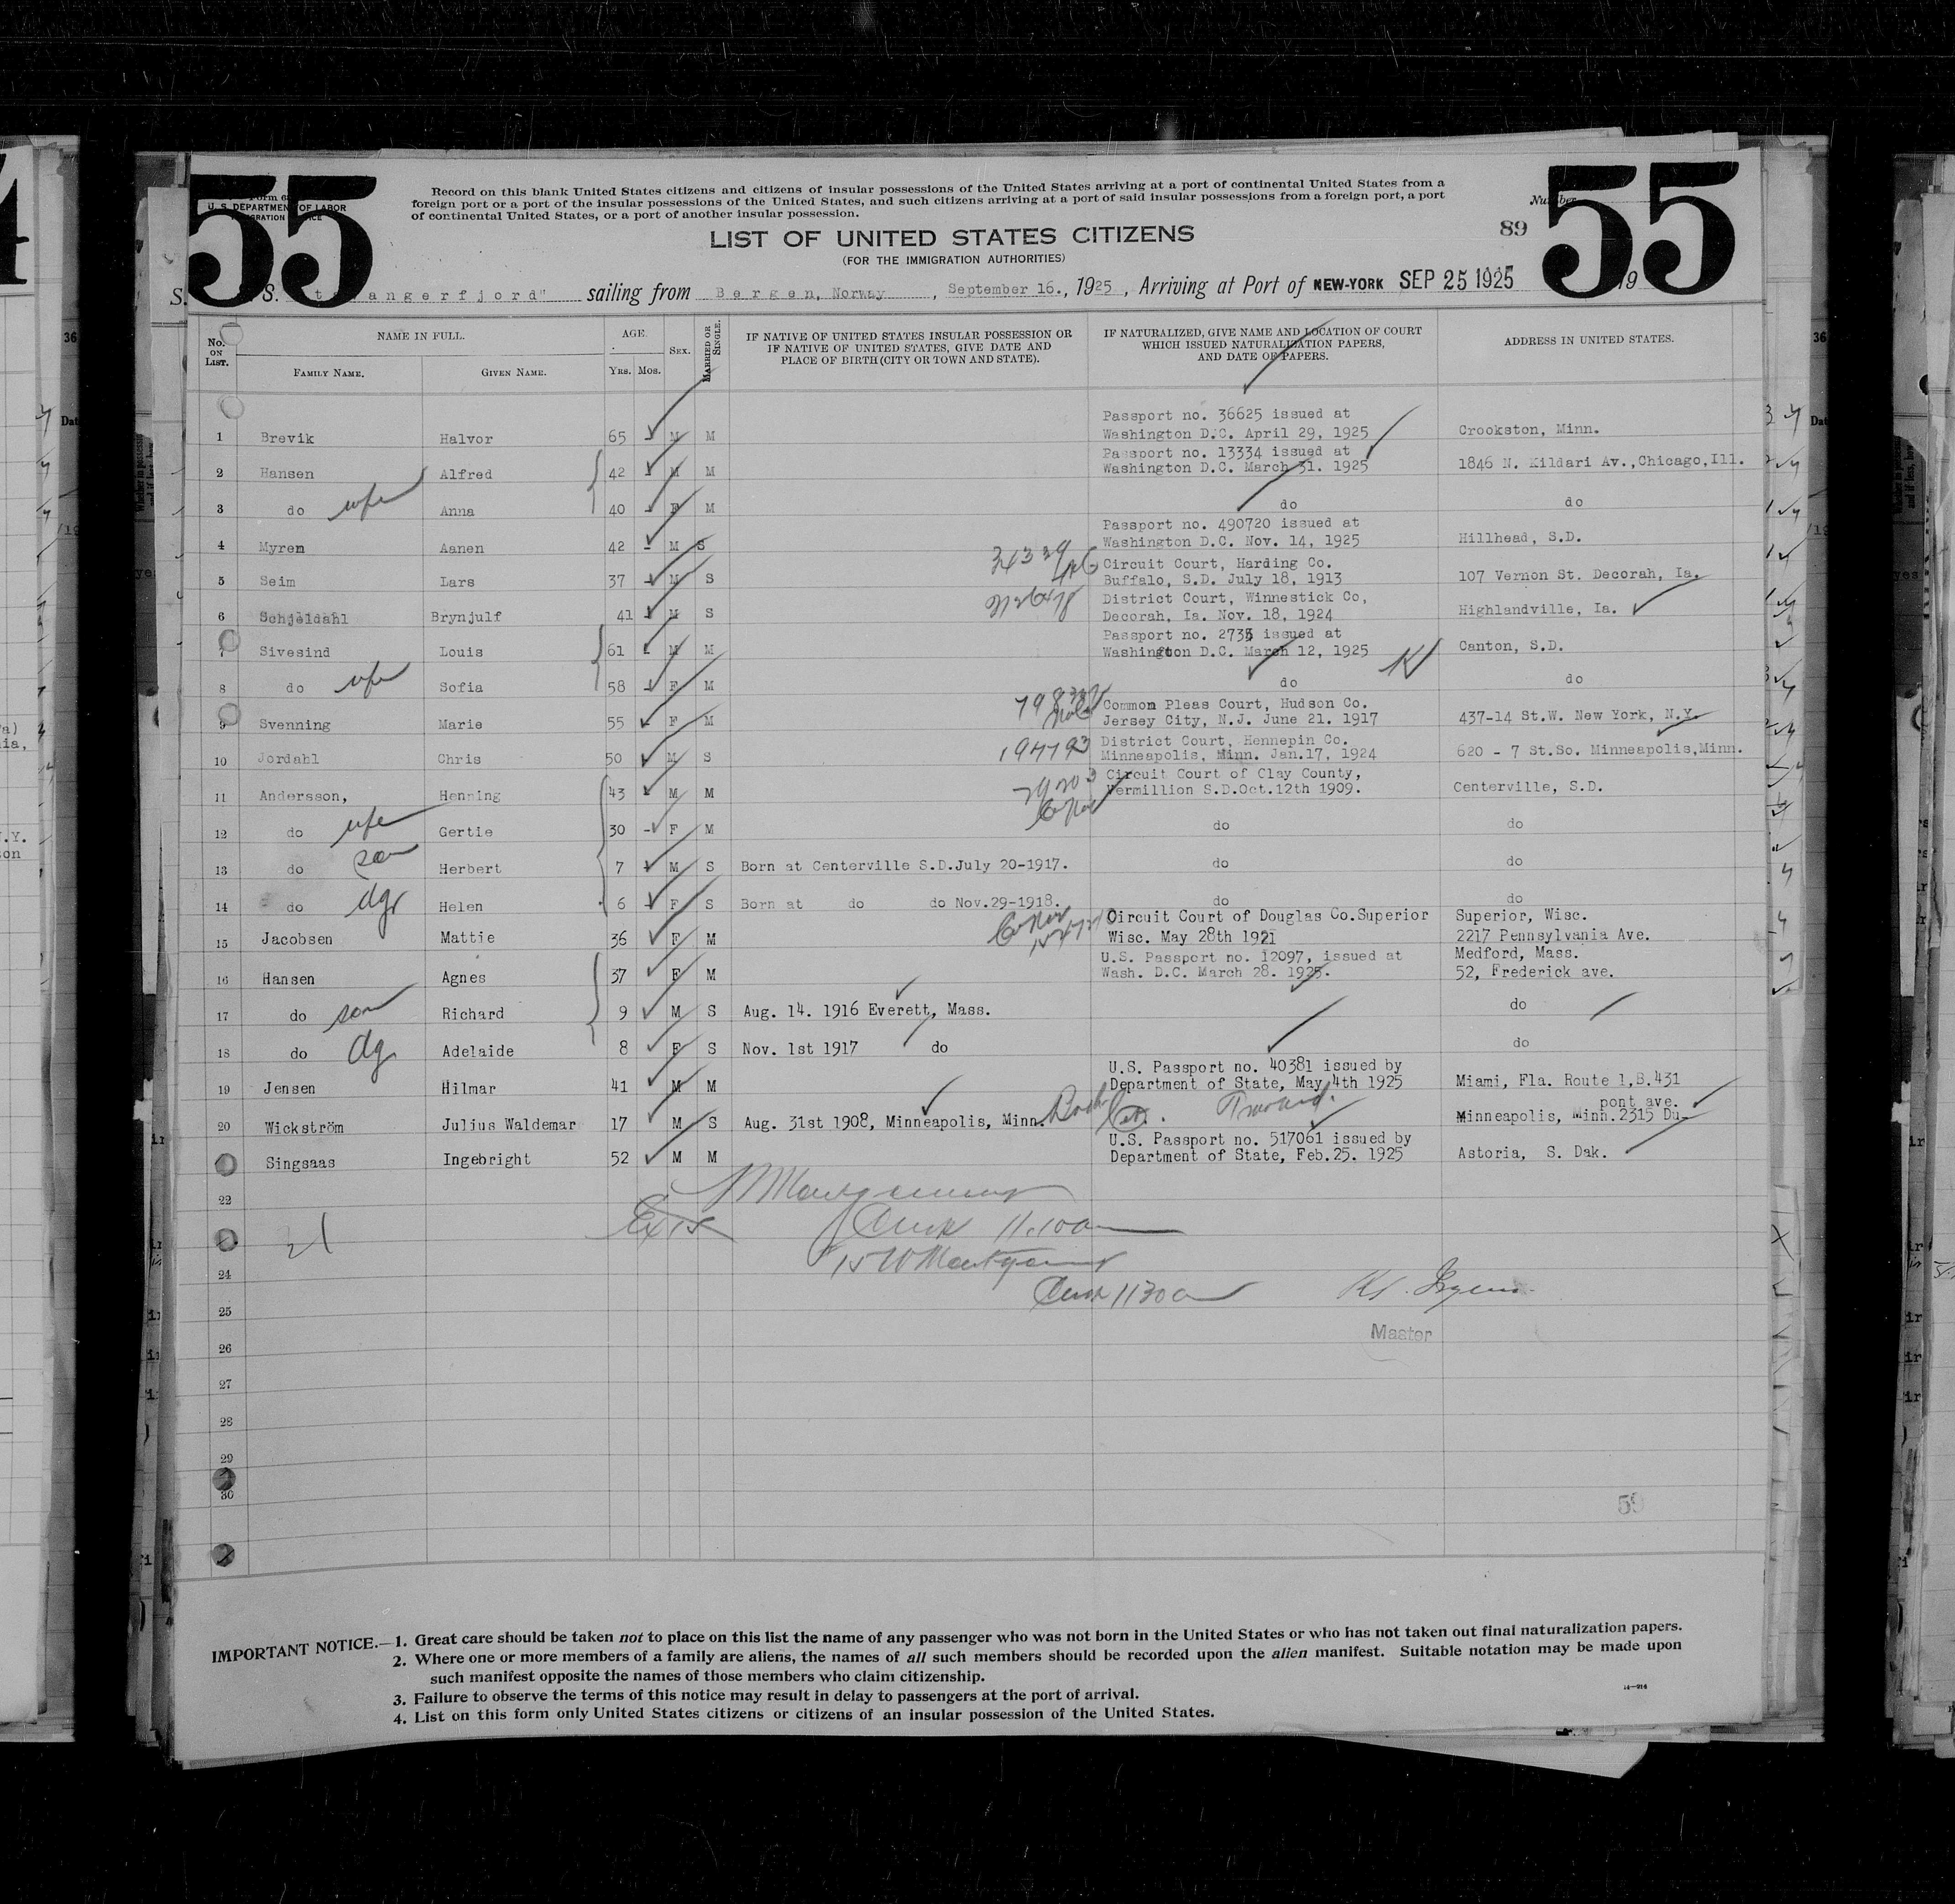 55
55
Form 6
U. S. DEPARTMENT OF LABOR
Record on this blank United States citizens and citizens of insular possessions of the United States arriving at a port of continental United States from a
foreign port or a port of the insular possessions of the United States, and such citizens arriving at a port of said insular possessions from a foreign port, a port
of continental United States, or a port of another insular possession.
Number
89
LIST OF UNITED STATES CITIZENS
(FOR THE IMMIGRATION AUTHORITIES)
S. S. "Stavangerfjord" sailing from Bergen, Norway, September 16., 1925, Arriving at Port of NEW-YORK SEP 25 1925 19
No. ON LIST.
NAME IN FULL.
FAMILY NAME. GIVEN NAME.
AGE.
YRS. MOS.
SEX.
MARRIED OR SINGLE.
IF NATIVE OF UNITED STATES INSULAR POSSESSION OR
IF NATIVE OF UNITED STATES, GIVE DATE AND
PLACE OF BIRTH (CITY OR TOWN AND STATE).
IF NATURALIZED, GIVE NAME AND LOCATION OF COURT
WHICH ISSUED NATURALIZATION PAPERS,
AND DATE OF PAPERS.
ADDRESS IN UNITED STATES.
Passport no. 36625 issued at
1 Brevik Halvor 65 - M M Washington D.C. April 29, 1925 Crookston, Minn.
Passport no. 13334 issued at
2 Hansen Alfred 42 - M M Washington D.C. March 31. 1925 1846 N. Kildari Av.,Chicago,Ill.
3 do wife Anna 40 - F M do do
Passport no. 490720 issued at
4 Myren Aanen 42 - M S Washington D.C. Nov. 14, 1925 Hillhead, S.D.
Circuit Court, Harding Co.
5 Seim Lars 37 - M S Buffalo, S.D. July 18, 1913 107 Vernon St. Decorah, Ia.
District Court, Winnestick Co,
6 Schjeldahl Brynjulf 41 - M S Decorah, Ia. Nov. 18, 1924 Highlandville, Ia.
Passport no. 2735 issued at
7 Sivesind Louis 61 - M M Washington D.C. March 12, 1925 Canton, S.D.
8 do wife Sofia 58 - F M do do
Common Pleas Court, Hudson Co.
9 Svenning Marie 55 - F M Jersey City, N.J. June 21. 1917 437-14 St.W. New York, N.Y.
District Court, Hennepin Co.
10 Jordahl Chris 50 M S Minneapolis, Minn. Jan.17, 1924 620 - 7 St.So. Minneapolis,Minn.
Circuit Court of Clay County,
11 Andersson, Henning 43 - M M Vermillion S.D.Oct.12th 1909. Centerville, S.D.
12 do wife Gertie 30 - F M do do
13 do son Herbert 7 - M S Born at Centerville S.D.July 20-1917. do do
14 do dgr Helen 6 - F S Born at do do Nov.29-1918. do do
Circuit Court of Douglas Co.Superior Superior, Wisc.
15 Jacobsen Mattie 36 F M Wisc. May 28th 1921 2217 Pennsylvania Ave.
U.S. Passport no. 12097, issued at Medford, Mass.
16 Hansen Agnes 37 F M Wash. D.C. March 28. 1925. 52, Frederick ave.
17 do son Richard 9 M S Aug. 14. 1916 Everett, Mass. do
18 do dg Adelaide 8 F S Nov. 1st 1917 do do
U.S. Passport no. 40381 issued by
19 Jensen Hilmar 41 M M Department of State, May 4th 1925 Miami, Fla. Route 1,B.431
pont ave.
20 Wickström Julius Waldemar 17 M S Aug. 31st 1908, Minneapolis, Minn. Minneapolis, Minn.2315 Du-
U.S. Passport no. 517061 issued by
Singsaas Ingebright 52 M M Department of State, Feb.25. 1925 Astoria, S. Dak.
22
21
24
25
26
Master
27
28
29
30
IMPORTANT NOTICE.—1. Great care should be taken not to place on this list the name of any passenger who was not born in the United States or who has not taken out final naturalization papers.
2. Where one or more members of a family are aliens, the names of all such members should be recorded upon the alien manifest. Suitable notation may be made upon
such manifest opposite the names of those members who claim citizenship.
3. Failure to observe the terms of this notice may result in delay to passengers at the port of arrival.
4. List on this form only United States citizens or citizens of an insular possession of the United States.
14—916